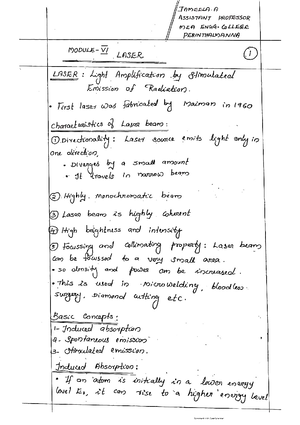 JAMEELA.A
ASSISTANT PROFESSOR
MEA ENGG. COLLEGE
PERINTHALMANNA
MODULE-VI
LASER
1
LASER : Light Amplification by Stimulated
Emission of Radiation.
• First laser was fabricated by Maiman in 1960
Characteristics of Laser beam:
① Directionality: Laser source emits light only in
one direction,
• Diverges by a small amount
• It travels in narrow beam
② Highly monochromatic beam
③ Laser beam is highly coherent
④ High brightness and intensity
⑤ Focussing and collimating property: Laser beam
can be focussed to a very small area.
• so density and power can be increased.
• This is used in microwelding, bloodless
surgery, Diamond cutting etc.
Basic Concepts:
1- Induced absorption
2- Spontaneous emission
3- Stimulated emission.
Induced Absorption:
• If an atom is initially in a lower energy
level E₁, it can rise to a higher energy level